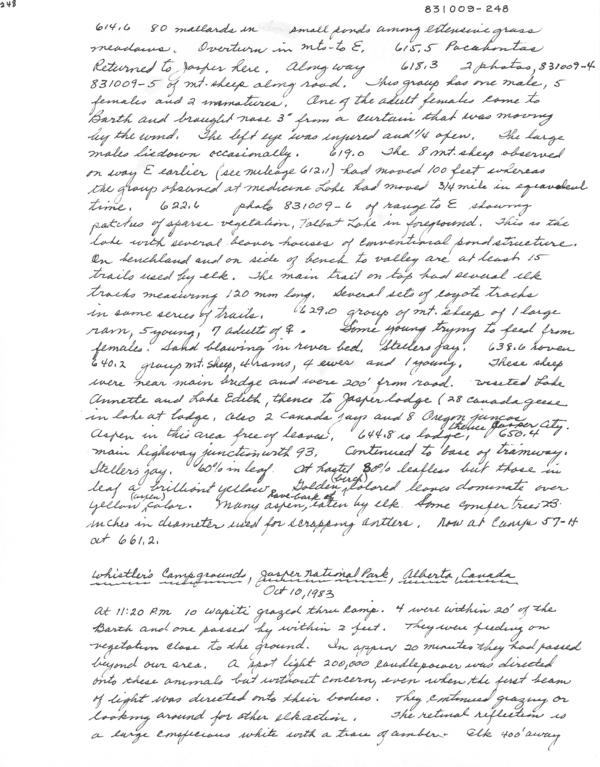 248
831009-248
614.6 80 mallards in small ponds among extensive grass
meadows. Overturn in mts to E. 615.5 Pocahontas
Returned to Jasper here. Along way 618.3 2 photos, 831009-4
831009-5 of mt. sheep along road. This group has one male, 5
females and 2 immatures. One of the adult females came to
Barth and brought nose 3" from a curtain that was moving
by the wind. The left eye was injured and 1/4 open. The large
males lie down occasionally. 619.0 The 8 mt. sheep observed
on way E earlier (see mileage 612.1) had moved 100 feet whereas
the group observed at medicine Lake had moved 3/4 mile in equivalent
time. 622.6 photo 831009-6 of range to E showing
patches of sparse vegetation, Talbot Lake in foreground. This is the
lake with several beaver houses of conventional pond structure.
On benchland and on side of bench to valley are at least 15
trails used by elk. The main trail on top had several elk
tracks measuring 120 mm long. Several sets of coyote tracks
in same series of trails. 629.0 group of mt. sheep of 1 large
ram, 5 young, 7 adults of ♀. Some young trying to feed from
females. Sand blowing in river bed. Stellers jay. 638.6 raven
640.2 group mt. sheep, 4 rams, 4 ewes and 1 young. These sheep
were near main bridge and were 200' from road. visited Lake
Annette and Lake Edith, thence to Jasper lodge (28 canada geese
in lake at lodge, also 2 Canada jays and 8 Oregon juncos
Aspen in this area free of leaves. 644.8 is lodge, thence Jasper City. 650.4
main highway junction with 93. Continued to base of tramway.
Stellers jay. 60% in leaf. At hostel 80% leafless but those in
leaf a brilliant yellow. Golden (birch) colored leaves dominate over
yellow (aspen) color. Many aspen, have bark eaten by elk. Some conifer trees
inches in diameter used for scrapping antlers. Now at Camp 57-H
at 661.2.
Whistler's Campgrounds, Jasper National Park, Alberta, Canada
Oct 10, 1983
At 11:20 P.M. 10 wapiti grazed thru camp. 4 were within 20' of the
Barth and one passed by within 2 feet. They were feeding on
vegetation close to the ground. In approx 20 minutes they had passed
beyond our area. A spot light 200,000 candlepower was directed
onto these animals but without concern, even when the first beam
of light was directed onto their bodies. They continued grazing or
looking around for other elk action. The retinal reflection is
a large conspicious white with a trace of amber. Elk 400' away